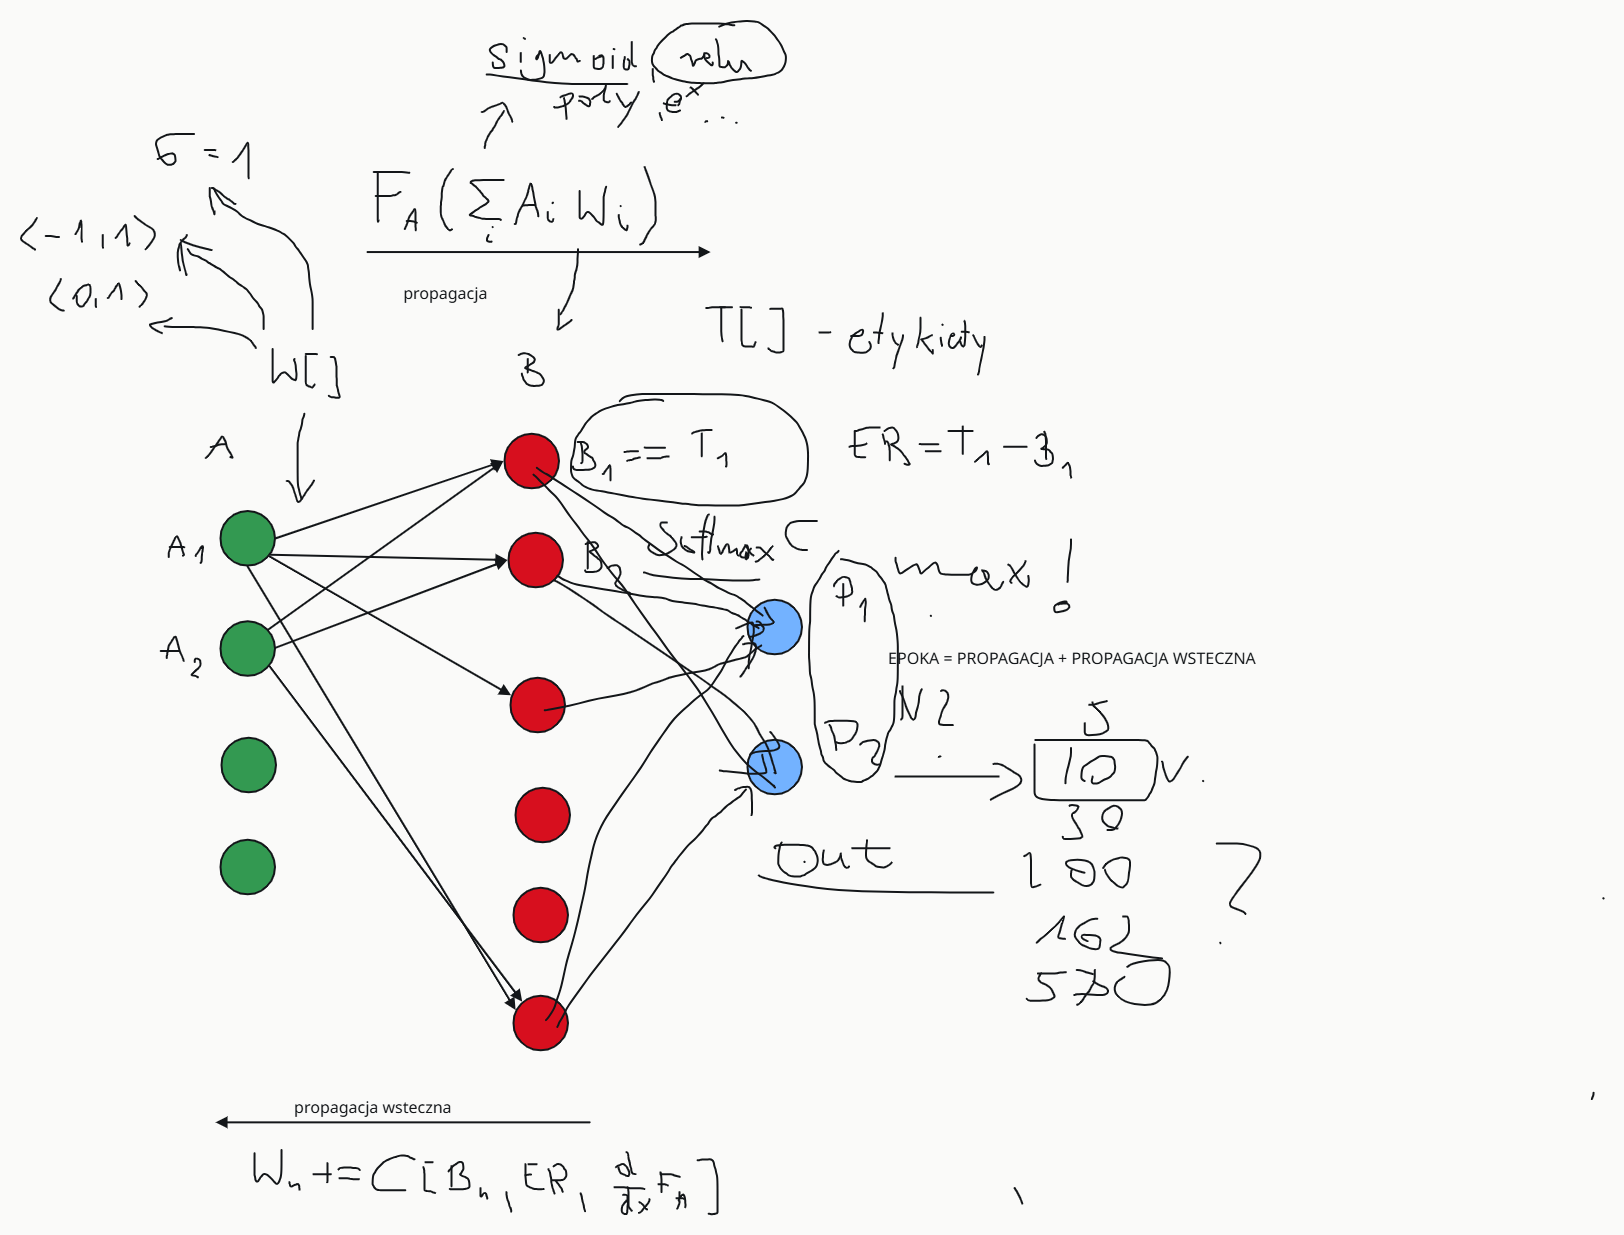 sigmoid, relu
poly, e^x ...
σ = 1
F_A ( Σ_i A_i W_i )
<-1, 1>
<0, 1>
propagacja
T[] - etykiety
W[]
B
A
B_1 == T_1
ER = T_1 - B_1
A_1
B_2
Softmax C
max!
P_1
A_2
EPOKA = PROPAGACJA + PROPAGACJA WSTECZNA
N2
P_2
5
10 v
30
out
100
?
162
570
propagacja wsteczna
W_n += C[B_n, ER, d/dx F_A]